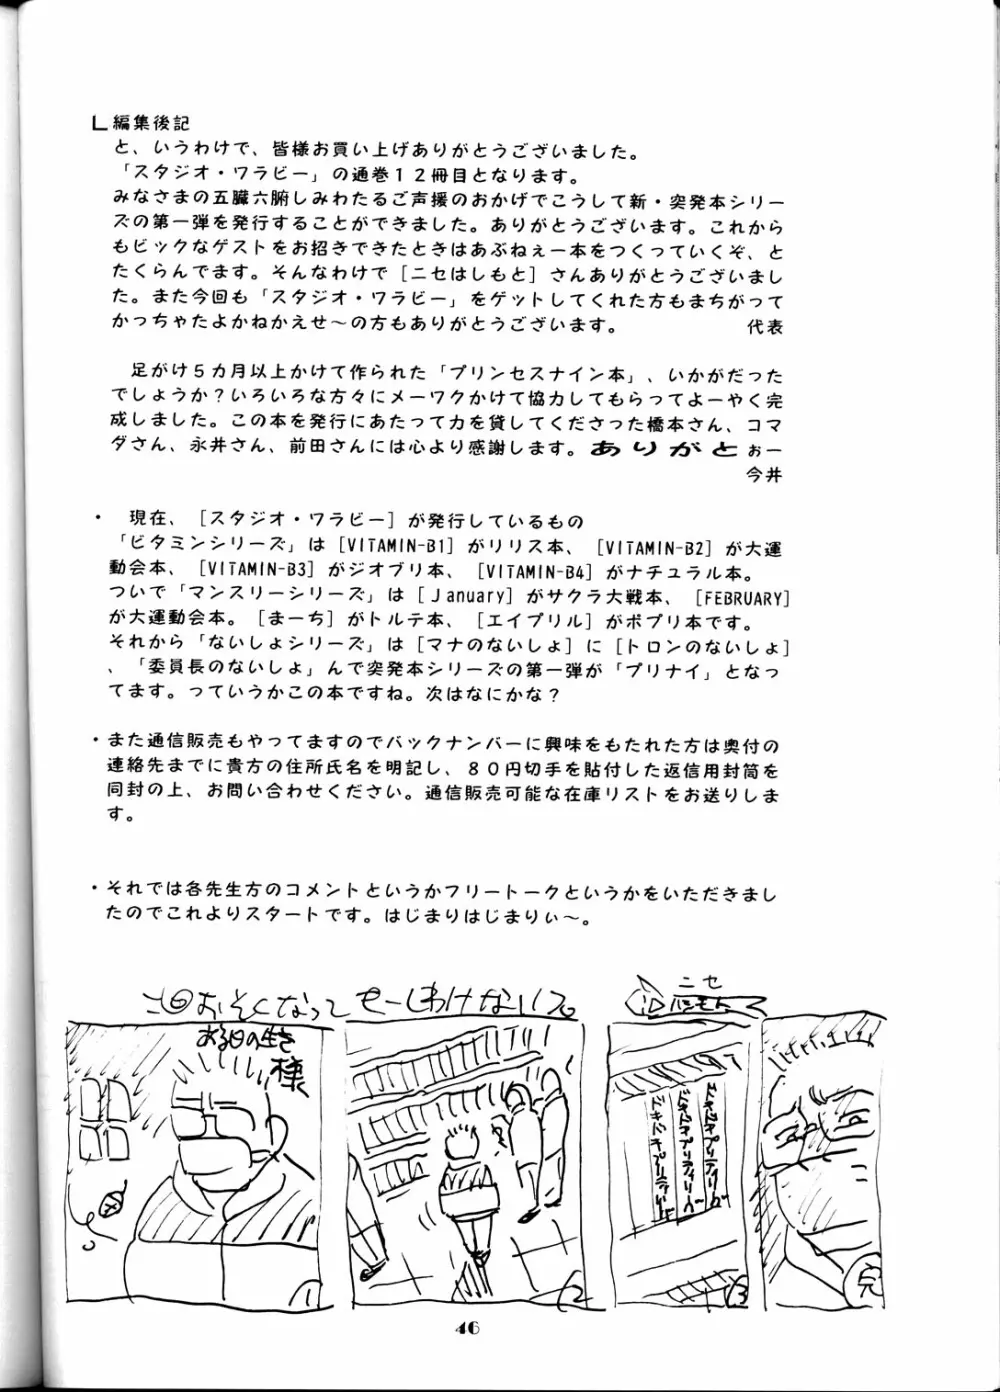 編集後記
と、いうわけで、皆様お買い上げありがとうございました。
「スタジオ・ワラビー」の通巻１２冊目となります。
みなさまの五臓六腑しみわたるご声援のおかげでこうして新・突発本シリー
ズの第一弾を発行することができました。ありがとうございます。これから
もビックなゲストをお招きできたときはあぶねぇー本をつくっていくぞ、と
たくらんでます。そんなわけで［ニセはしもと］さんありがとうございまし
た。また今回も「スタジオ・ワラビー」をゲットしてくれた方もまちがって
かっちゃたよかねかえせ～の方もありがとうございます。　代表
足がけ５カ月以上かけて作られた「プリンセスナイン本」、いかがだった
でしょうか？いろいろな方々にメーワクかけて協力してもらってよーやく完
成しました。この本を発行にあたって力を貸してくださった橋本さん、コマ
ダさん、永井さん、前田さんには心より感謝します。ありがとぉー
今井
・　現在、［スタジオ・ワラビー］が発行しているもの
「ビタミンシリーズ」は［VITAMIN-B1］がリリス本、［VITAMIN-B2］が大運
動会本、［VITAMIN-B3］がジオブリ本、［VITAMIN-B4］がナチュラル本。
ついで「マンスリーシリーズ」は［January］がサクラ大戦本、［FEBRUARY］
が大運動会本。［まーち］がトルテ本、［エイプリル］がポプリ本です。
それから「ないしょシリーズ」は［マナのないしょ］に［トロンのないしょ］
、「委員長のないしょ」んで突発本シリーズの第一弾が「プリナイ」となっ
てます。っていうかこの本ですね。次はなにかな？
・また通信販売もやってますのでバックナンバーに興味をもたれた方は奥付の
連絡先までに貴方の住所氏名を明記し、８０円切手を貼付した返信用封筒を
同封の上、お問い合わせください。通信販売可能な在庫リストをお送りしま
す。
・それでは各先生方のコメントというかフリートークというかをいただきまし
たのでこれよりスタートです。はじまりはじまりぃ～。
おそくなって もーしわけないス。
ニセ
ハシモト
ある日の生き様
1
2
3
完
46